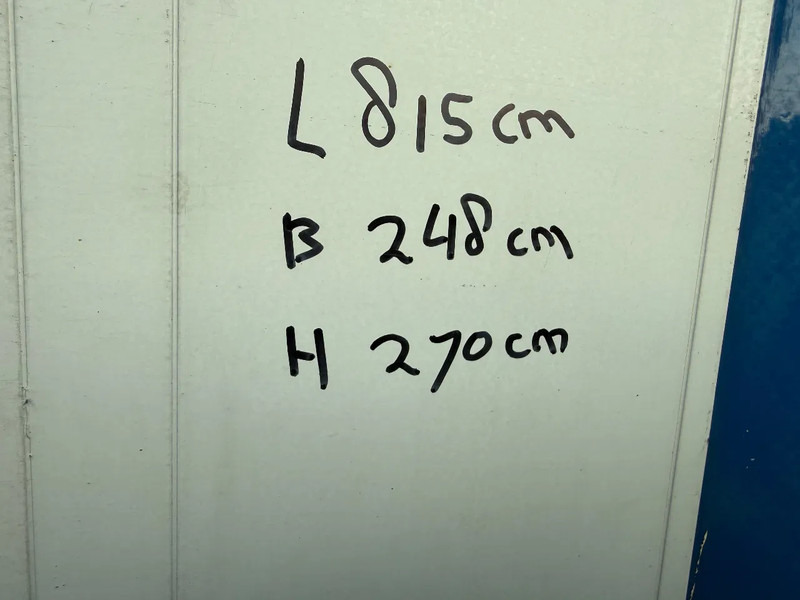 L 815 cm
B 248 cm
H 270 cm